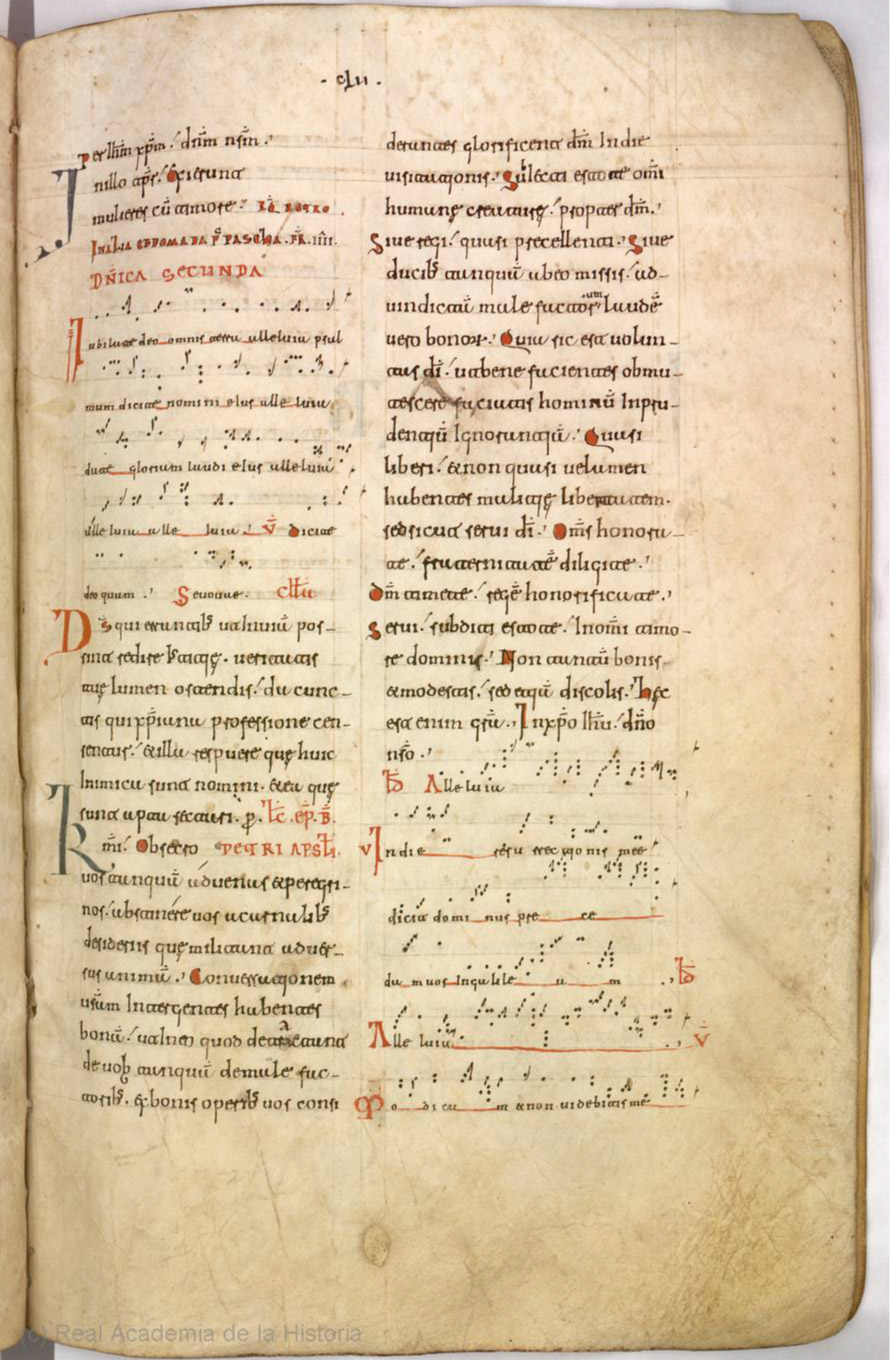 · clii ·
per ihm xpm / dnm nrm .
Inillo aps / Exierunt
mulieres cū timore .
DNICA SECUNDA
Iubilate deo omnis terra alleluia psal
mum dicite nomini eius alleluia
date gloriam laudi eius alleluia
alleluia alle luia . V̄ Dicite
deo quam . Seuouae .
Ds qui errantib; ut in uiā pos-
sint redire ueritatis
tuę lumen ostendis / da cunc-
tis qui xp̄iana professione cen-
sentur / & illa respuere quę huic
inimica sunt nomini . & ea quę
sunt apta sectari . p̄ . Lc̄ . ep̄ . B .
Kmi / Obsecro PETRI APSTLI .
uos tanquā aduenas & peregri-
nos / abstinere uos a carnalib;
desideriis quę militant aduer-
sus animā . Conuersationem
urām Inter gentes habentes
bonā / ut in eo quod detractant
de uob tanquā de male fac-
torib; . & bonis operib; uos consi
derantes glorificent dm̄ In die
uisitationis . Subiecti estote om̄i
humanę creaturę / propter dm̄ .
Siue regi / quasi precellenti . Siue
ducib; tanquā ab eo missis / ad-
uindictā male factorum laudē
uero bonor . Quia sic est uolun-
tas dī / ut bene facientes obmu-
tescere faciatis hominū Inpru-
dentiū Ignorantiā . Quasi
liberi / & non quasi uelamen
habentes malitię libertatem .
sed sicut serui dī . Om̄s honora-
te / fraternitatē diligite .
Dm̄ timete / regē honorificate .
Serui / subditi estote / In om̄i timo-
re dominis . Non tantū bonis
& modestis / sed etiā discolis . Hęc
est enim grā . In xp̄o ihū / dn̄o
nr̄o .
Alleluia
V In die resurrectionis meę
dicit dominus precę
dam uos In galilea m .
Alleluia . V̄
Modicum & non uidebitis me